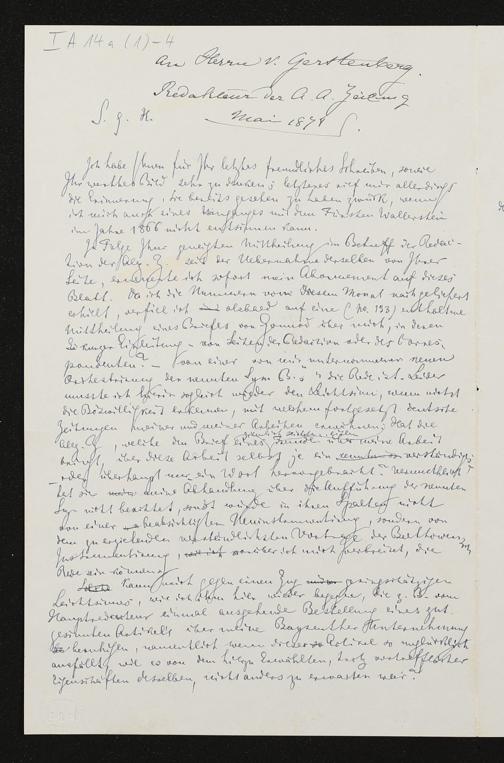 I A 14 a (1)–4
An Herrn v. Gerstenberg.
Redakteur der A. A. Zeitung
S. g. H.
Mai 1874
Ich habe Ihnen für Ihr letztes freundliches Schreiben, sowie
Ihr werthes Bild sehr zu danken; letzteres rief mir allerdings
die Erinnerung, Sie bereits gesehen zu haben zurück, wenn
ich mich auch eines Umganges mit dem Fürsten Wallerstein
im Jahre 1866 nicht entsinnen kann.
In Folge Ihrer geneigten Mittheilung in Betreff der Redac-
tion der Allg. Z. seit der Uebernahme derselben von Ihrer
Seite, erneuerte ich sofort mein Abonnement auf dieses
Blatt. Da ich die Nummern vom diesem Monat nachgeliefert
erhielt, verfiel ich alsbald auf eine (No. 193) enthaltene
Mittheilung eines Briefes von Gounod über mich, in deren
Einleitung – von Seiten der Redaction oder des Corres-
pondenten? – von einer von mir unternommenen neuen
Orchestrirung der neunten Sym. die Rede ist. Leider
musste ich hierin sogleich wieder den Leichtsinn, wenn nicht
die Böswilligkeit erkennen, mit welchem fortgesetzt deutsche
Zeitungen meiner und meiner Arbeiten erwähnen. Hat die
Allg. Z., welche den Brief eines über meine Arbeit
bringt, über diese Arbeit selbst je ein verständig
oder überhaupt nur ein Wort hervorgebracht?
Hat sie meine Abhandlung über die Aufführung der neunten
Sy. nicht beachtet, sonst würde in ihren Spalten nicht
von einer beabsichtigten Neuinstrumentirung, sondern von
dem zu erzielenden verständlichsten Vortrage der Beethoven
Instrumentirung, worüber ich mich verbreitet, die
Rede sein können.
kann mich gegen einen Zug geringschätzigen
Leichtsinns, wie ich ihm hier wieder begegne, die z. B. vom
Hauptredacteur einmal ausgehende Bestellung eines gut
gesinnten Artikels über meine Bayreuther Unternehmung
beruhigen, namentlich wenn dieser Artikel so
ausfällt, wie es von dem hiezu Erwählten, trotz vortrefflichster
Eigenschaften desselben, nicht anders zu erwarten war?